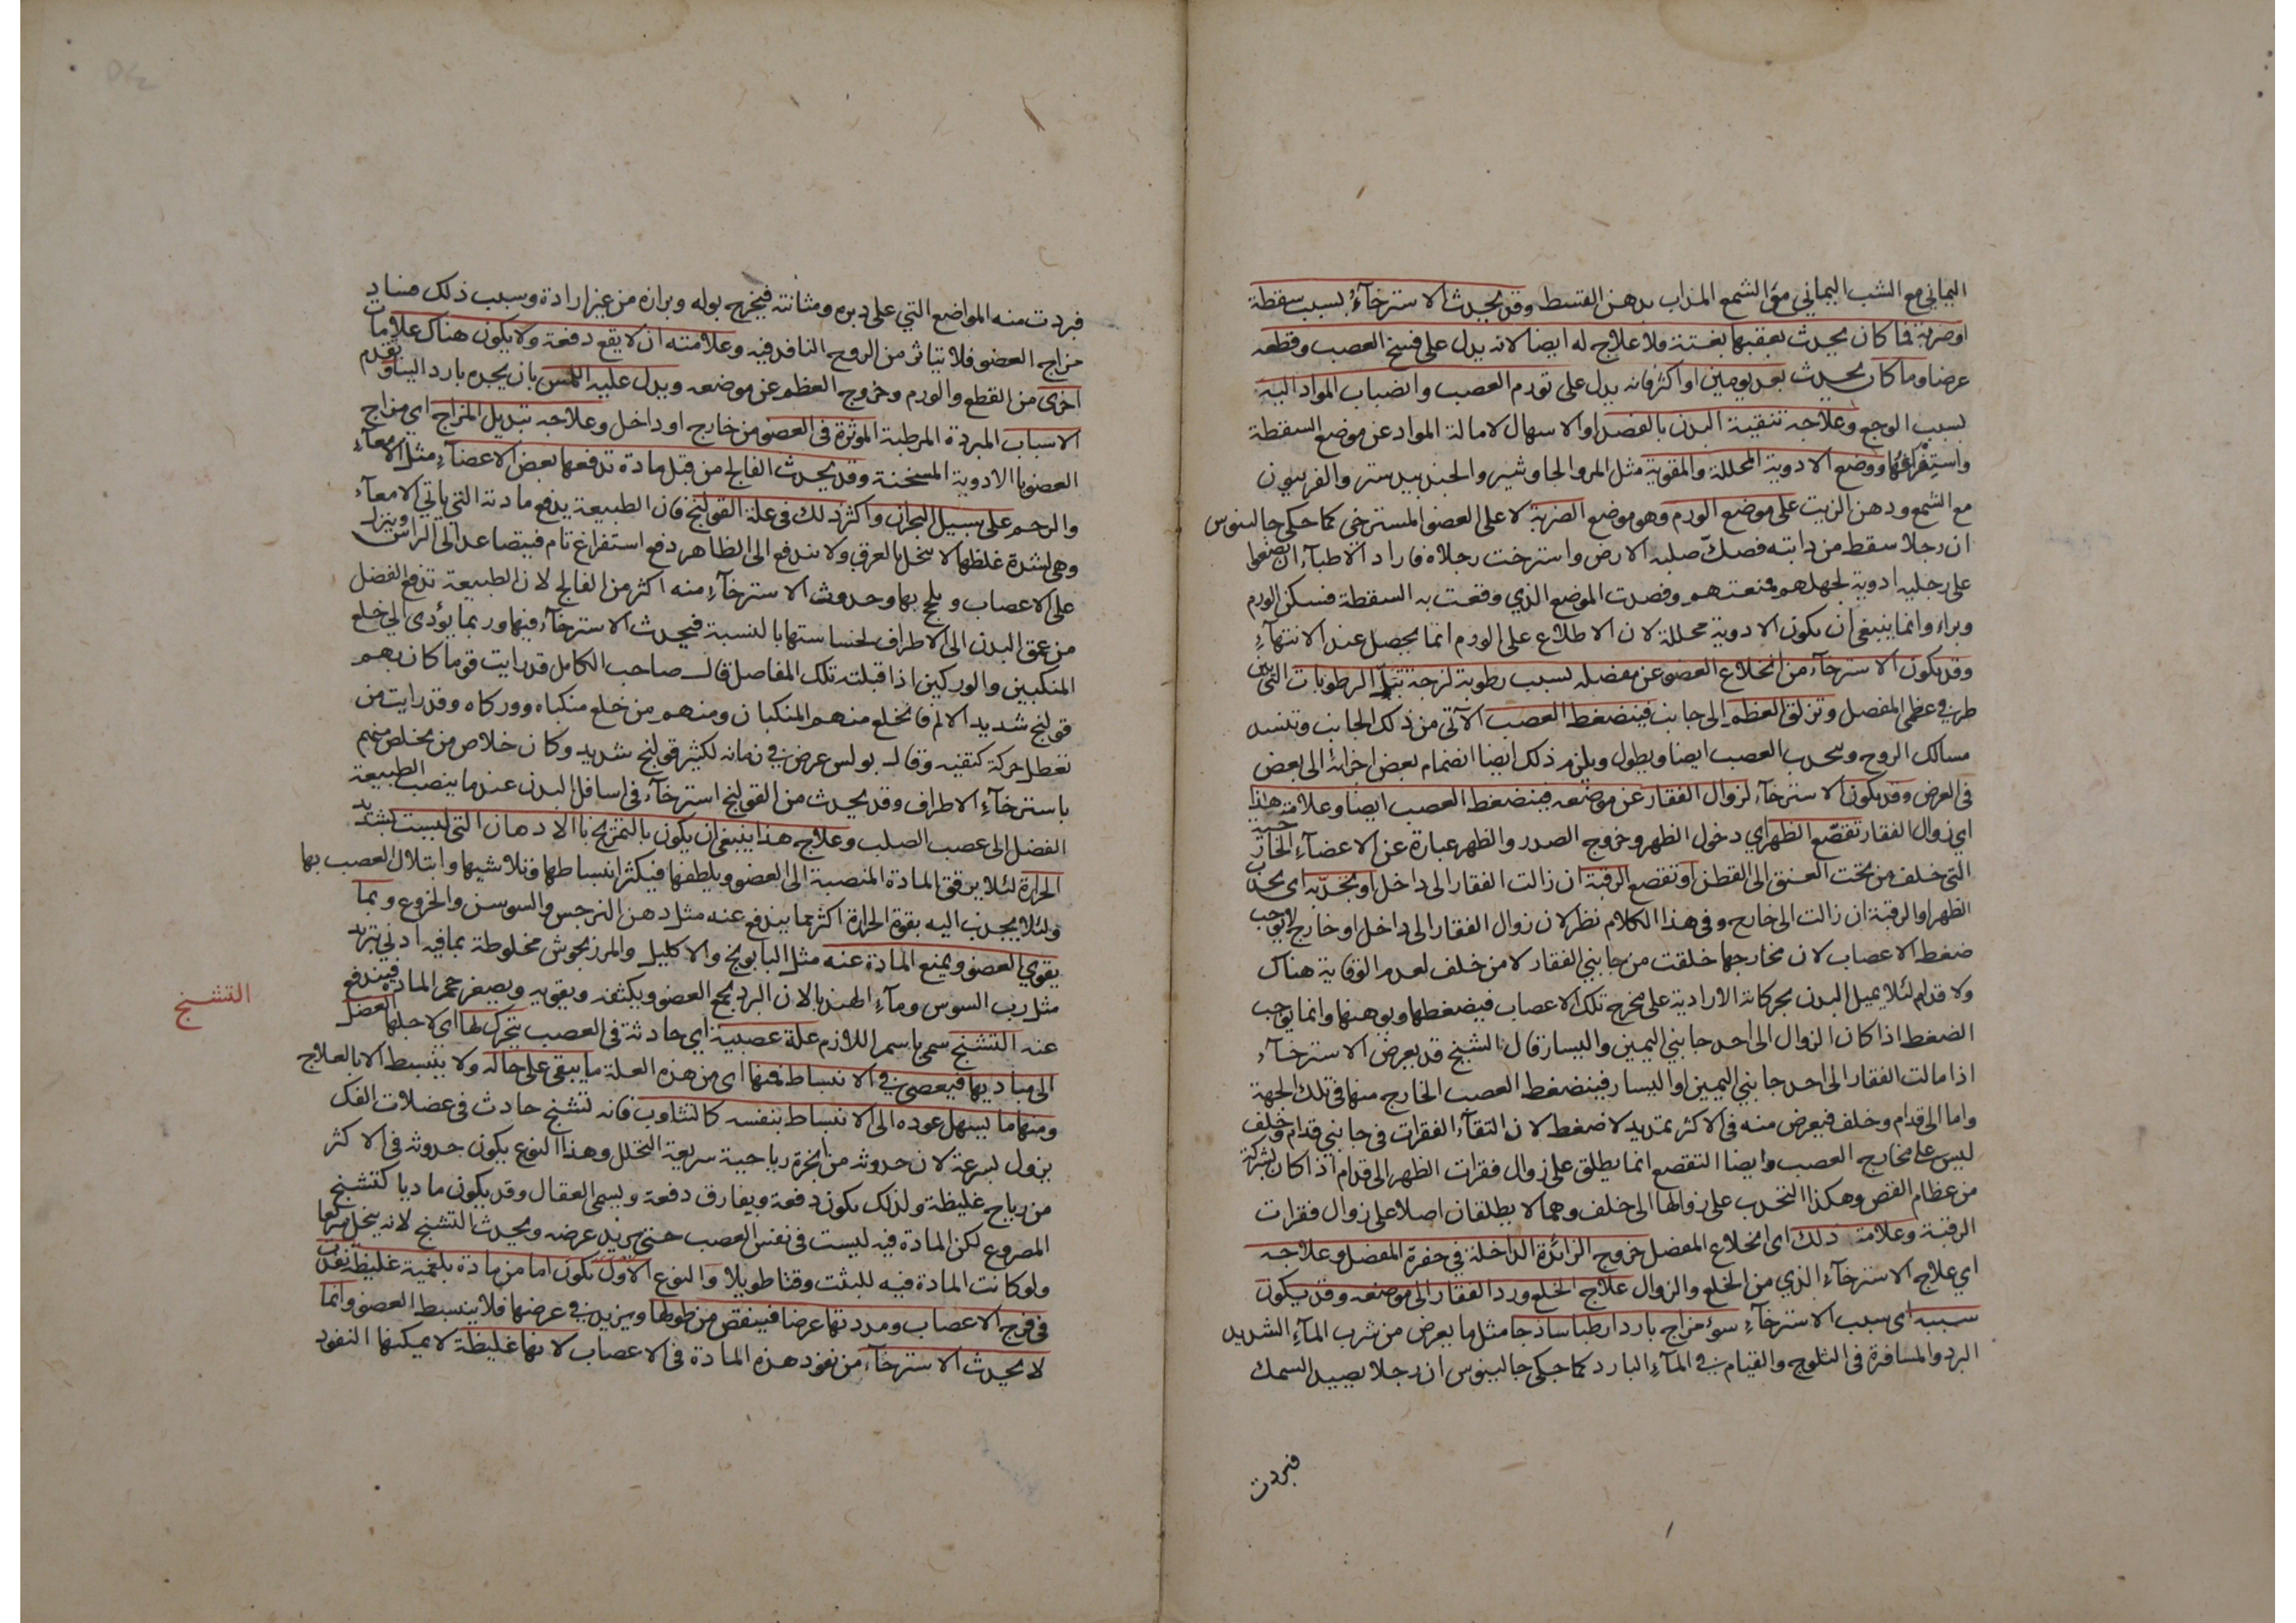 اليماني مع الشب اليماني مع الشمع المذاب بدهن القسط وقد يحدث الاسترخآء بسبب سقطة
او ضربة فما كان يحدث بعقبها بغتة فلا علاج له ايضا لانه يدل على فسخ العصب وقطعه
عرضا وما كان يحدث بعد يومين او اكثر فانه يدل على تورم العصب وانصباب المواد اليه
بسبب الوجع وعلاجه تنقية البدن بالفصد او الاسهال لامالة المواد عن موضع السقطة
واستفراغها ووضع الادوية المحللة والمقوية مثل المر والجاوشير والجندبيدستر والفربيون
مع الشمع ودهن الزيت على موضع الورم وهو موضع الضربة لا على العضو المسترخي كما حكى جالينوس
ان رجلا سقط من دابته فصك صلبه الارض واسترخت رجلاه فاراد الاطبآء ان يضعوا
على رجليه ادوية لجهلهم فمنعتهم وقصدت الموضع الذي وقعت به السقطة فسكن الورم
وبراء وانما ينبغي ان يكون الادوية محللة لان الاطلاع على الورم انما يحصل عند الانتهآء
وقد يكون الاسترخآء من انخلاع العضو عن مفصله بسبب رطوبة لزجة تبل الرطوبات التي بين
طرفي عظمي المفصل وتزلق العظم الى جانب فينضغط العصب الآتي من ذلك الجانب وتنسد
مسالك الروح وينجذب العصب ايضا ويطول ويلزم ذلك ايضا انضمام بعض اجزائه الى بعض
في العرض وقد يكون الاسترخآء لزوال الفقار عن موضعه فينضغط العصب ايضا وعلامته هذا
اي زوال الفقار تقصع الظهر اي دخول الظهر وخروج الصدر والظهر عبارة عن الاعضآء الخارجية
التي خلف من تحت العنق الى القطن او تقصع الرقبة ان زالت الفقار الى داخل او تحدبه اي تحدب
الظهر او الرقبة ان زالت الى خارج وفي هذا الكلام نظر لان زوال الفقار الى داخل او خارج لا يوجب
ضغط الاعصاب لان مخارجها خلقت من جانبي الفقار لا من خلف لعدم الوقاية هناك
ولا قدام لئلا يميل البدن بحركاته الارادية على مخرج تلك الاعصاب فيضغطها ويوهنها وانما يوجب
الضغط اذا كان الزوال الى احد جانبي اليمين واليسار قال الشيخ قد يعرض الاسترخآء
اذا مالت الفقار الى احد جانبي اليمين او اليسار فينضغط العصب الخارج منها في تلك الجهة
واما الى قدام وخلف فيعرض منه في الاكثر تمديد لا ضغط لان التقآء الفقرات في جانبي قدام وخلف
ليس على مخارج العصب وايضا التقصع انما يطلق على زوال فقرات الظهر الى قدام اذا كان بشركة
من عظام القص وهكذا التحدب على زوالها الى خلف وهما لا يطلقان اصلا على زوال فقرات
الرقبة وعلامة ذلك اى انخلاع المفصل خروج الزائدة الداخلة في حفرة المفصل وعلاجه
اي علاج الاسترخآء الذي من الخلع والزوال علاج الخلع ورد الفقار الى موضعه وقد يكون
سببه اى سبب الاسترخآء سوء مزاج باردا رطبا ساذجا مثل ما يعرض من شرب المآء الشديد
البرد والمسافرة في الثلوج والقيام في المآء البارد كما حكى جالينوس ان رجلا يصيد السمك
فبردت
فبردت منه المواضع التي على دبره ومثانته فيخرج بوله وبرازه من غير ارادة وسبب ذلك فساد
مزاج العضو فلا يتاثر من الروح النافذ فيه وعلامته ان لا يقع دفعة ولا يكون هناك علامات
اخرى من القطع والورم وخروج العظم عن موضعه ويدل عليه اللمس بان يحده باردا ليسا وتقدم
الاسباب المبردة المرطبة الموثرة في العضو من خارج او داخل وعلاجه تبديل المزاج اي مزاج
العضو بالادوية المسخنة وقد يحدث الفالج من قبل مادة تدفعها بعض الاعضآء مثل الامعآء
والرحم على سبيل البحران واكثر ذلك في علة القولنج فان الطبيعة يدفع مادته التي ياتي الامعآء
وهي لشدة غلظها لا ينحل بالعرق ولا يندفع الى الظاهر دفع استفراغ تام فيتصاعد الى الراس وينزل
على الاعصاب ويلج بها وحدوث الاسترخآء منه اكثر من الفالج لان الطبيعة تدفع الفضل
من عمق البدن الى الاطراف لخساستها بالنسبة فيحدث الاسترخآء فيها وربما يؤدي الى خلع
المنكبين والوركين اذا قبلته تلك المفاصل قال صاحب الكامل قد رايت قوما كان بهم
قولنج شديد الالم فانخلع منهم المنكبان ومنهم من خلع منكباه ووركاه وقد رايت من
تعطل حركة كتفيه وقال بولس عرض في زمانه لكثير قولنج شديد وكان خلاص من يخلص منهم
باسترخآء الاطراف وقد يحدث من القولنج استرخآء في اسافل البدن عند ما ينصب الطبيعة
الفضل الى عصب الصلب وعلاج هذا ينبغي ان يكون بالتمريخ بالادهان التي ليست بشديد
الحرارة لئلا يرقق المادة المنصبة الى العضو ويلطفها فيكثر انبساطها وتلاشيها وابتلال العصب بها
ولئلا يجذب اليه بقوة الحرارة اكثر مما يندفع عنه مثل دهن النرجس والسوسن والخروع وبما
يقوي العضو ويمنع المادة عنه مثل البابونج والاكليل والمرزنجوش مخلوطة بما فيه ادنى تبريد
مثل رب السوس ومآء الهندبا لان البرد يجمع العضو ويكثفه ويقويه ويصغر حجم المادة فيندفع
عنه التشنج سمى باسم اللازم علة عصبية اي حادثة في العصب يتحرك لها اى لاجلها العضل
الى مباديها فيعصي في الانبساط فمنها اى من هذه العلة ما يبقى على حاله ولا ينبسط الا بالعلاج
ومنها ما يسهل عوده الى الانبساط بنفسه كالتثاوب فانه تشنج حادث في عضلات الفك
يزول بسرعة لان حدوثه من ابخرة رياحية سريعة التحلل وهذا النوع يكون حدوثه في الاكثر
من رياح غليظة ولذلك يكون دفعة ويفارق دفعة ويسمى العقال وقد يكون ماديا كتشنج
المصروع لكن المادة فيه ليست في نفس العصب حتى يزيد عرضه ويحدث التشنج لانه ينحل سريعا
ولو كانت المادة فيه للبثت وقتا طويلا والنوع الاول يكون اما من مادة بلغمية غليظة نفذت
في فرج الاعصاب ومددتها عرضا فينقص من طولها ويزيد في عرضها فلا ينبسط العضو وانما
لا يحدث الاسترخآء من نفوذ هذه المادة في الاعصاب لانها غليظة لا يمكنها النفوذ
التشنج